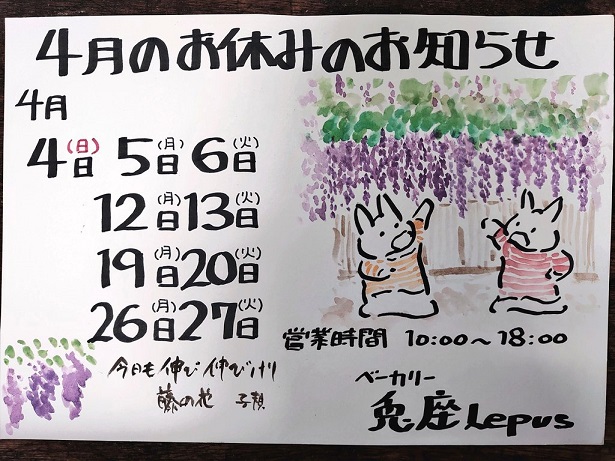 4月のお休みのお知らせ
4月
4日(日) 5日(月) 6日(火)
12日(月) 13日(火)
19日(月) 20日(火)
26日(月) 27日(火)
営業時間 10:00〜18:00
今日も伸び伸びけり
藤の花
ベーカリー
兎座Lepus